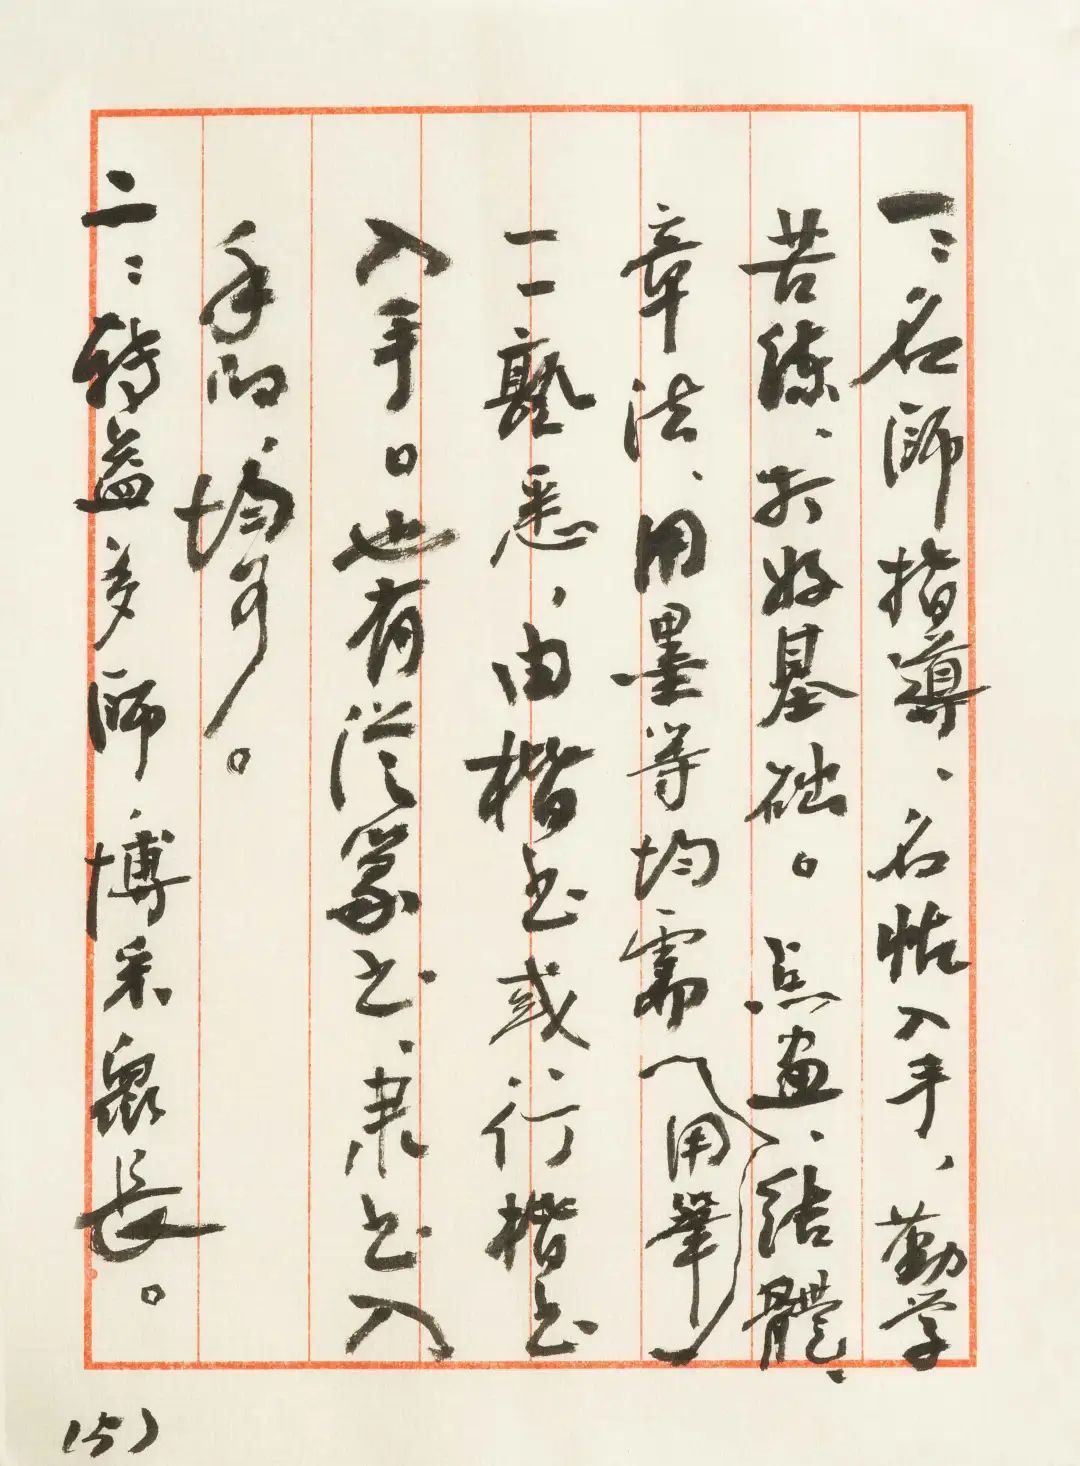 一：名師指導、名帖入手，勤学
苦练、打好基础。点画、结體、
章法、用墨等均需
用筆
一一熟悉，由楷书或行楷书
入手。也有从篆书、隶书入
手的，均可。
二：转益多師，博采眾長。
(5)